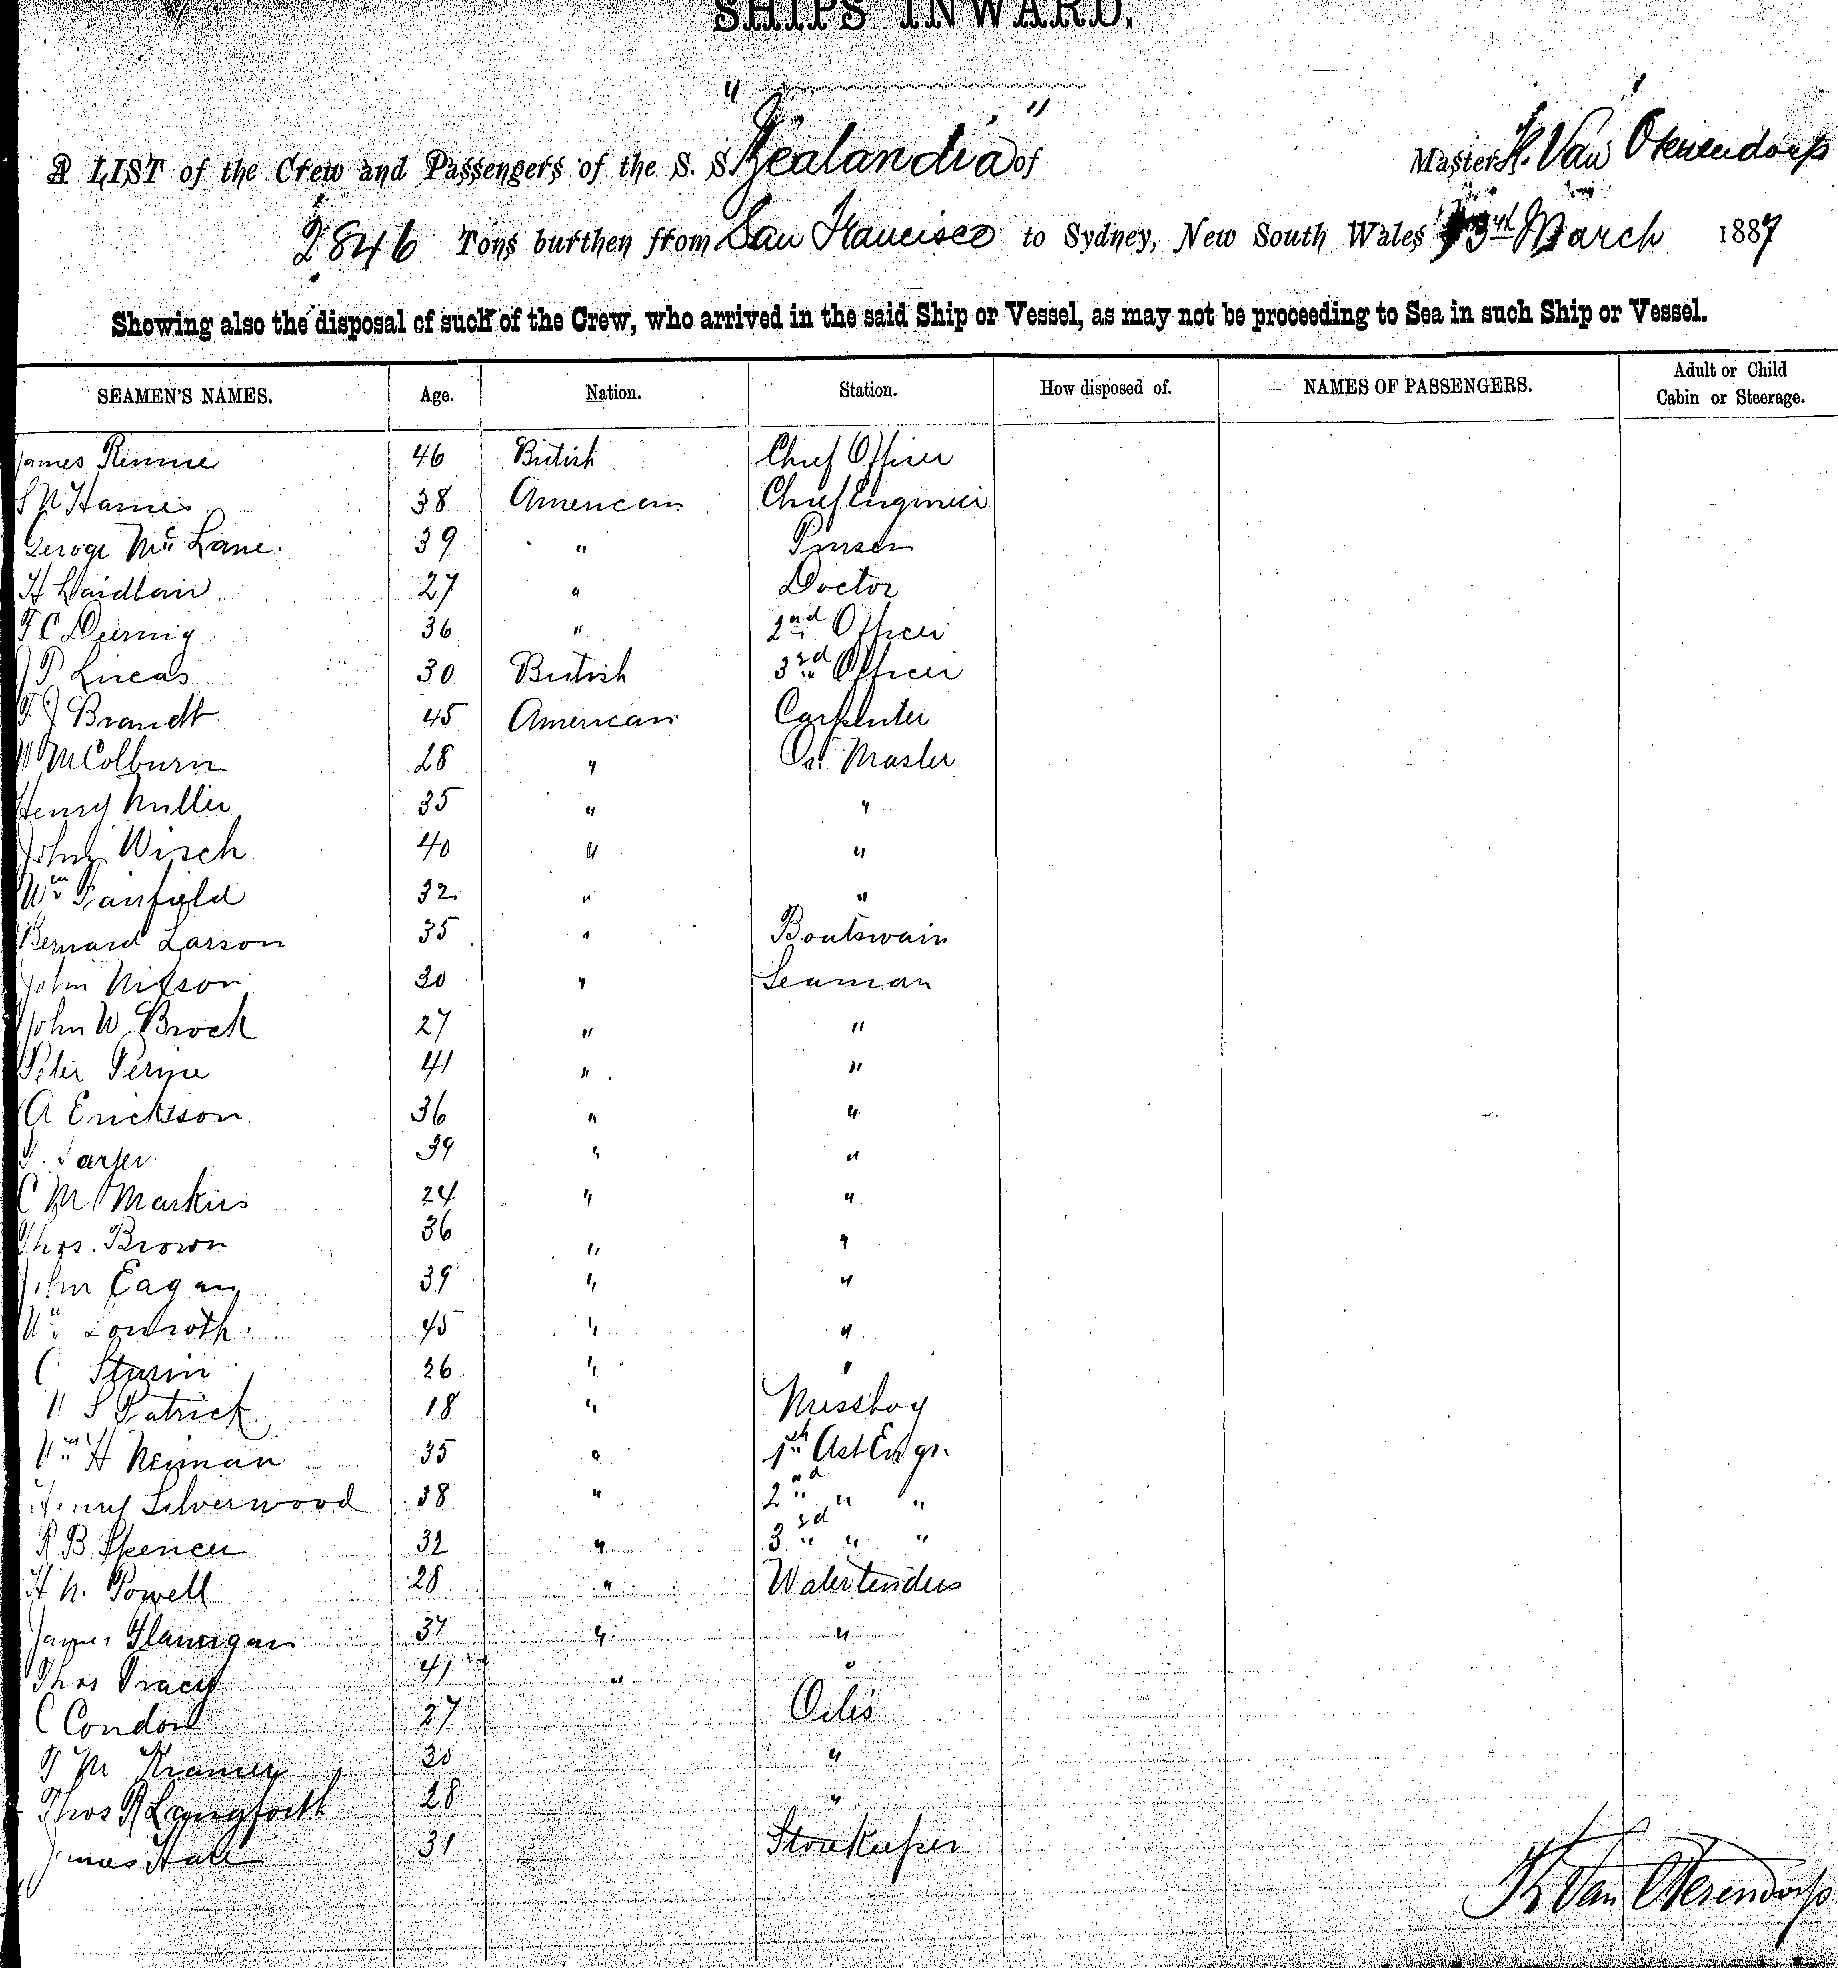 SHIPS INWARD.
A LIST of the Crew and Passengers of the S. S. "Zealandia" of Master H. Van Oterendorp
2846 Tons burthen from San Francisco to Sydney, New South Wales 3rd March 1887
Showing also the disposal of such of the Crew, who arrived in the said Ship or Vessel, as may not be proceeding to Sea in such Ship or Vessel.
SEAMEN'S NAMES. Age. Nation. Station. How disposed of. NAMES OF PASSENGERS. Adult or Child Cabin or Steerage.
James Rennie 46 British Chief Officer
38 American Chief Engineer
George Mc Lane. 39 " Purser
H Laidlaw 27 " Doctor
36 " 2nd Officer
J P Lucas 30 British 3rd Officer
F J Brandt 45 American Carpenter
W M Colburn 28 " Qr. Master
Henry Miller 35 " "
John Wisch 40 " "
Wm Fairfield 32 " "
Bernard Larson 35 " Boatswain
John Nilson 30 " Seaman
John W Brock 27 " "
Peter 41 " "
A Erickson 36 " "
39 " "
C M Markus 24 " "
Thos. Brown 36 " "
John Eagan 39 " "
Wm Lonroth 45 " "
C 26 " "
W S Patrick 18 " Messboy
Wm H Neiman 35 " 1st Ast Engr.
Henry Silverwood 38 " 2nd " "
R B Spencer 32 " 3rd " "
H N. Powell 28 " Watertenders
James Flanigan 37 " "
Thos Tracy 41 " "
C Condon 27 Oilers
F M Kramer 30 "
Thos R Langforth 28 "
James Hall 31 Storekeeper
H Van Oterendorp